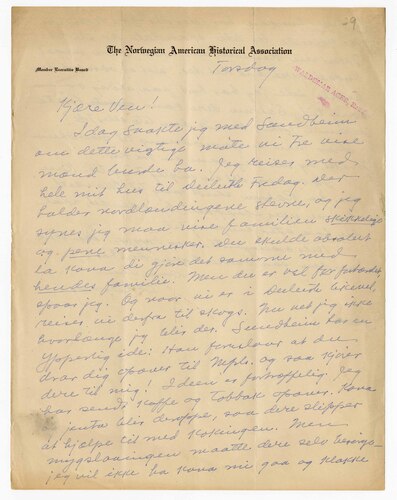 29
The Norwegian American Historical Association
Member Executive Board
Torsdag
WALDEMAR AGER
Kjære Ven!
I dag snakte jeg med Sundheim
om dette vigtige møte vi tre vise
mænd burde ha. Jeg reiser med
hele mit hus til Duluth Fredag. Der
holdes nordlændingene stevne, og jeg
synes jeg maa vise familien skikkelige
og pene mennesker. Du skulde absolut
ha kona di gjøre det samme med
hendes familie. Men du er vel for
spaar jeg. Og naar vi er i Duluth likevel,
reiser vi derfra til skogs. Nu vet jeg ikke
hvorlænge jeg blir der. Sundheim har en
ypperlig ide: Han foreslaar at du
drar dig opover til Mpls. og saa kjører
dere til mig! Ideen er fortræffelig. Jeg
har sendt kaffe og tobbak opover. Kona
og jenta blir deroppe, saa dere slipper
at hjælpe til med kokingen. Men
myggslaaingen maatte dere selv besørge.
jeg vil ikke ha kona mi gaa og klakke